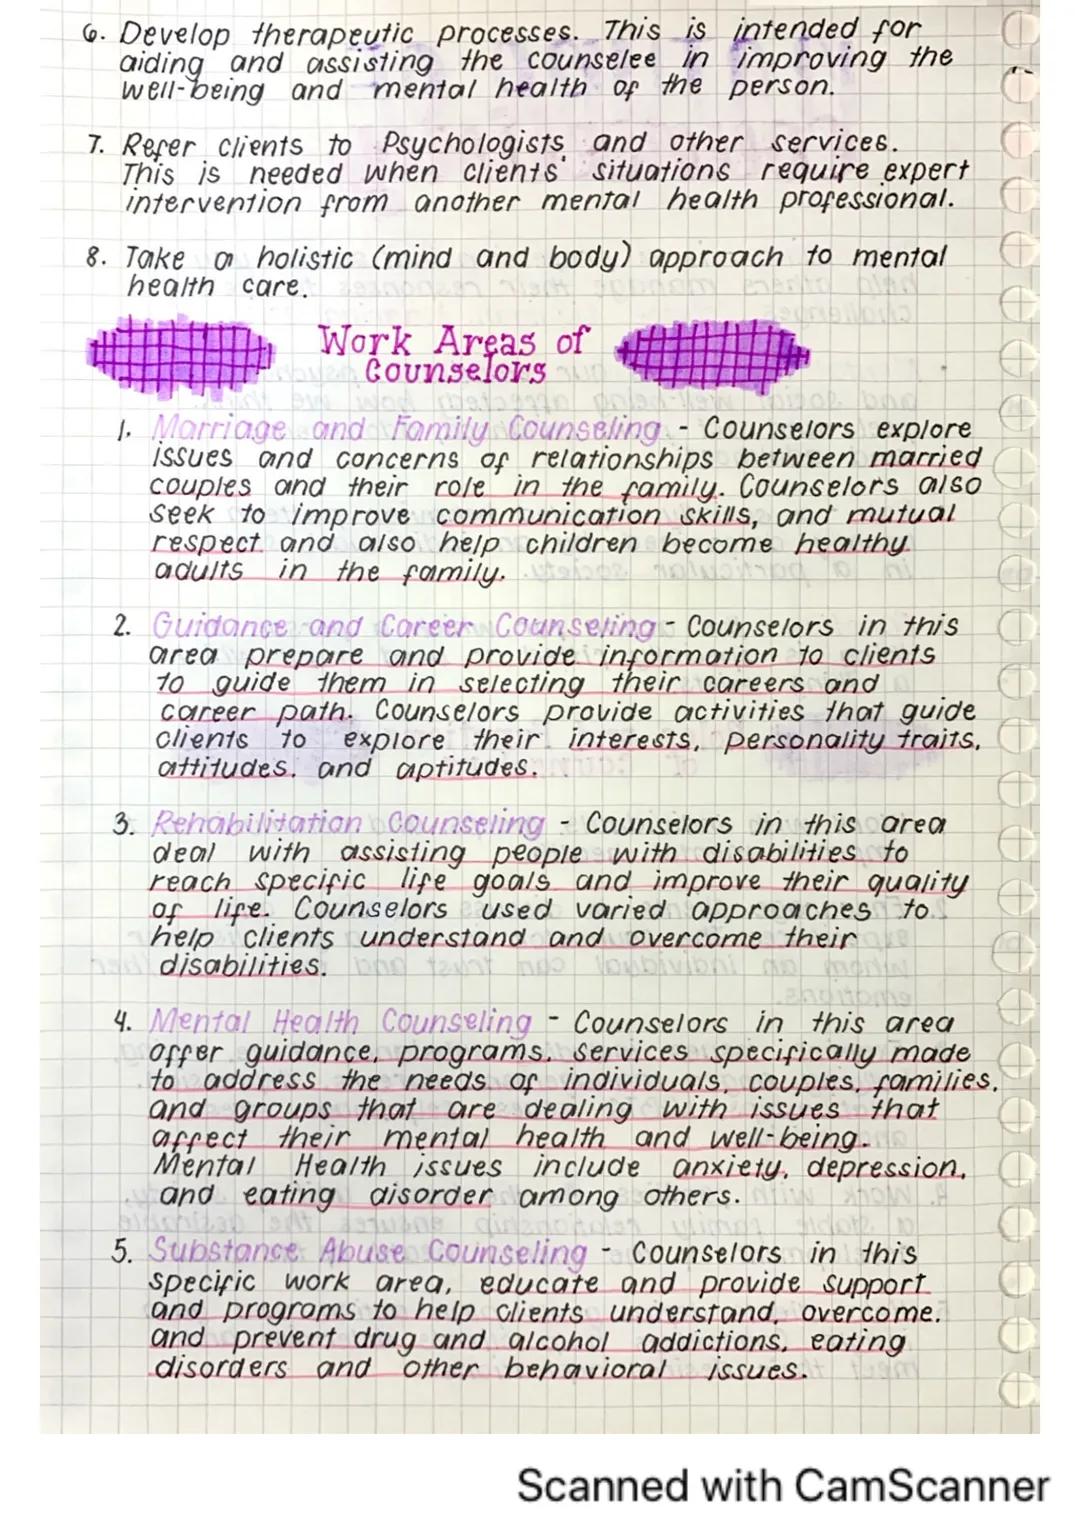 6. Develop therapeutic processes. This is intended for
aiding and assisting the counselee in improving the
well-being and mental health of the person.
7. Refer clients to Psychologists and other services.
This is needed when clients' situations require expert
intervention from another mental health professional.
8. Take a holistic (mind and body) approach to mental
health care.
Work Areas of
Counselors
1. Marriage and Family Counseling - Counselors explore
issues and concerns of relationships between married
couples and their role in the family. Counselors also
seek to improve communication skills, and mutual
respect and also help children become healthy
adults in the family.
2. Guidance and Career Counseling - Counselors in this
area prepare and provide information to clients
to guide them in selecting their careers and
career path. Counselors provide activities that guide
clients to explore their interests, personality traits,
attitudes, and aptitudes.
3. Rehabilitation Counseling - Counselors in this area
deal with assisting people with disabilities to
reach specific life goals and improve their quality
of life. Counselors used varied approaches to
help clients understand and overcome their
disabilities.
4. Mental Health Counseling - Counselors in this area
offer guidance, programs, services specifically made
to address the needs of individuals, couples, families,
and groups that are dealing with issues that
affect their mental health and well-being.
Mental Health issues include anxiety, depression,
and eating disorder among others.
5. Substance Abuse Counseling - Counselors in this
specific work area, educate and provide support
and programs to help clients understand, overcome,
and prevent drug and alcohol addictions, eating
disorders and other behavioral issues.
Scanned with CamScanner